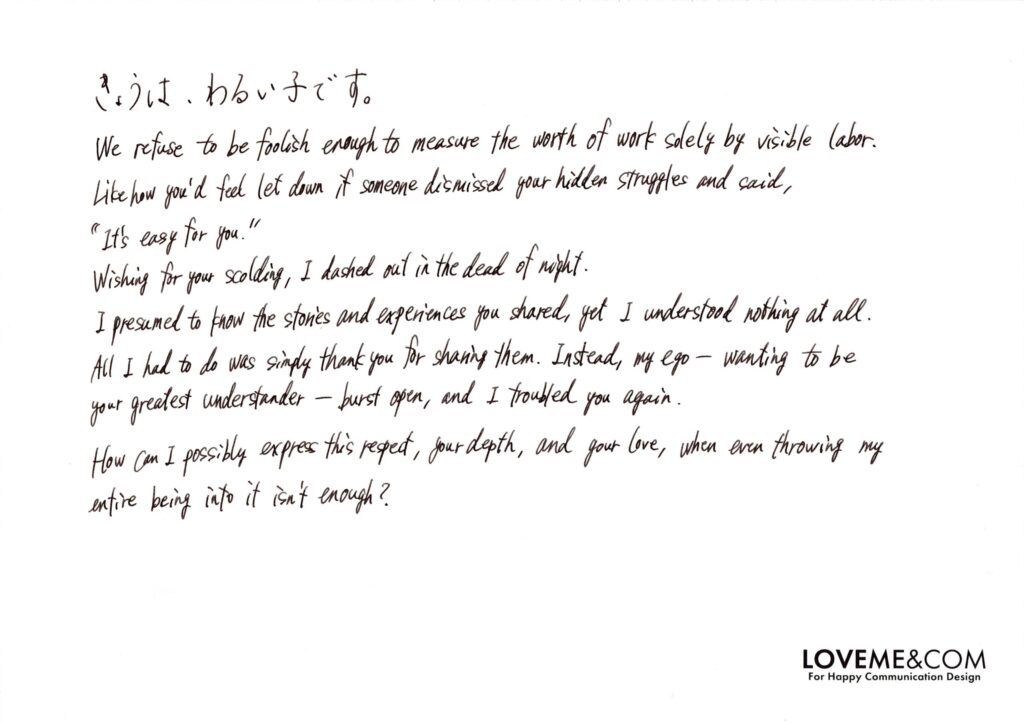 きょうは、わるい子です。
We refuse to be foolish enough to measure the worth of work solely by visible labor.
Like how you'd feel let down if someone dismissed your hidden struggles and said,
"It's easy for you."
Wishing for your scolding, I dashed out in the dead of night.
I presumed to know the stories and experiences you shared, yet I understood nothing at all.
All I had to do was simply thank you for sharing them. Instead, my ego – wanting to be
your greatest understander – burst open, and I troubled you again.
How can I possibly express this respect, your depth, and your love, when even throwing my
entire being into it isn't enough?
LOVEME&COM
For Happy Communication Design